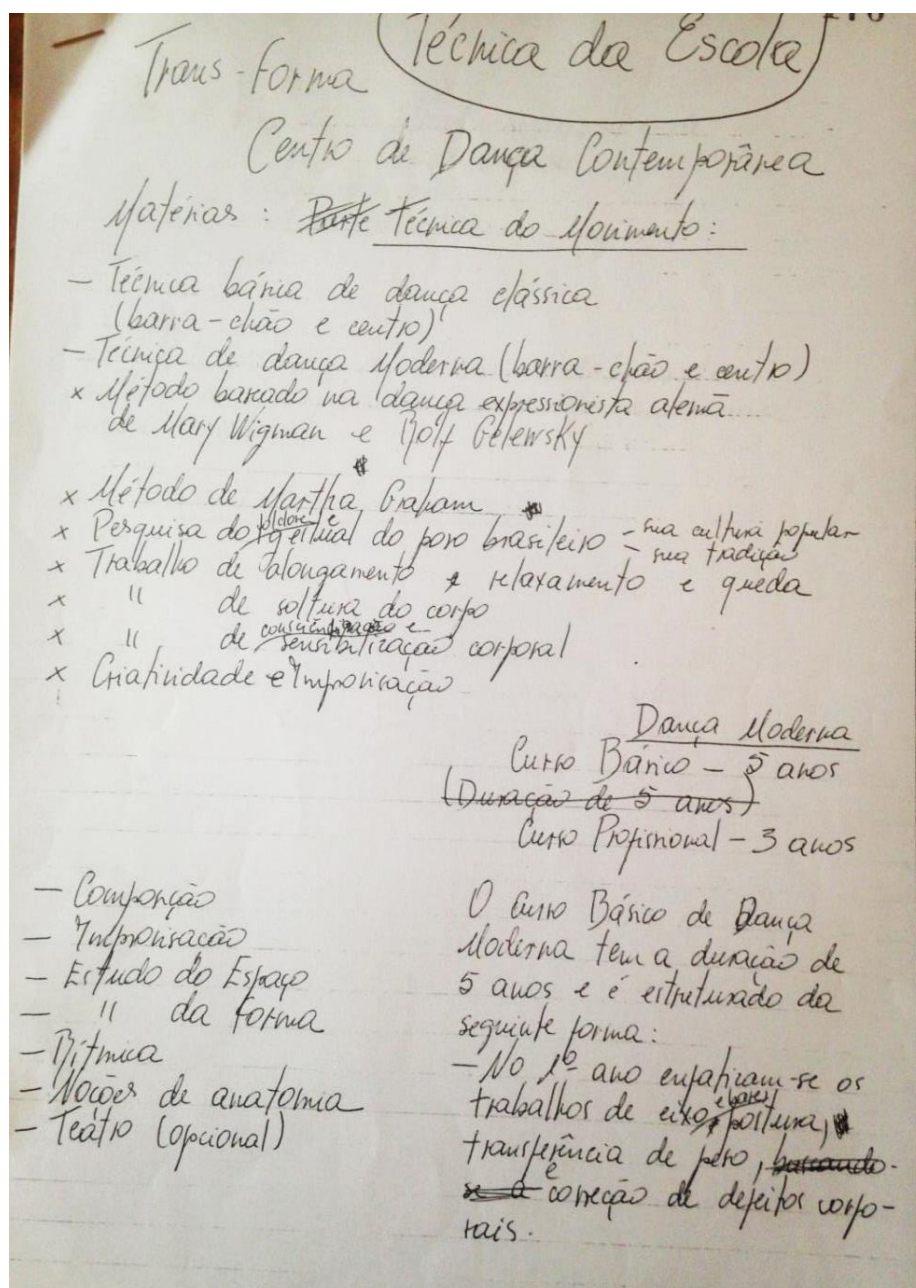 Técnica da Escola
Trans-forma
Centro de Dança Contemporânea
Matérias : Parte Técnica do Movimento:
- Técnica básica de dança clássica
(barra-chão e centro)
- Técnica de dança Moderna (barra-chão e centro)
x Método baseado na dança expressionista alemã
de Mary Wigman e Rolf Gelewsky
x Método de Martha Graham
x Pesquisa do folclore e gestual do povo brasileiro - sua cultura popular
- sua tradição
x Trabalho de alongamento e relaxamento e queda
x " de soltura do corpo
x " de conscientização e sensibilização corporal
x Criatividade e Improvisação
Dança Moderna
Curso Básico - 5 anos
(Duração de 5 anos)
Curso Profissional - 3 anos
- Composição
- Improvisação
- Estudo do Espaço
- " da forma
- Rítmica
- Noções de anatomia
- Teatro (opcional)
O Curso Básico de Dança
Moderna tem a duração de
5 anos e é estruturado da
seguinte forma:
- No 1º ano enfatizam-se os
trabalhos de eixo, postura,
transferência de peso, buscando-
se a e correção de defeitos corpo-
rais.